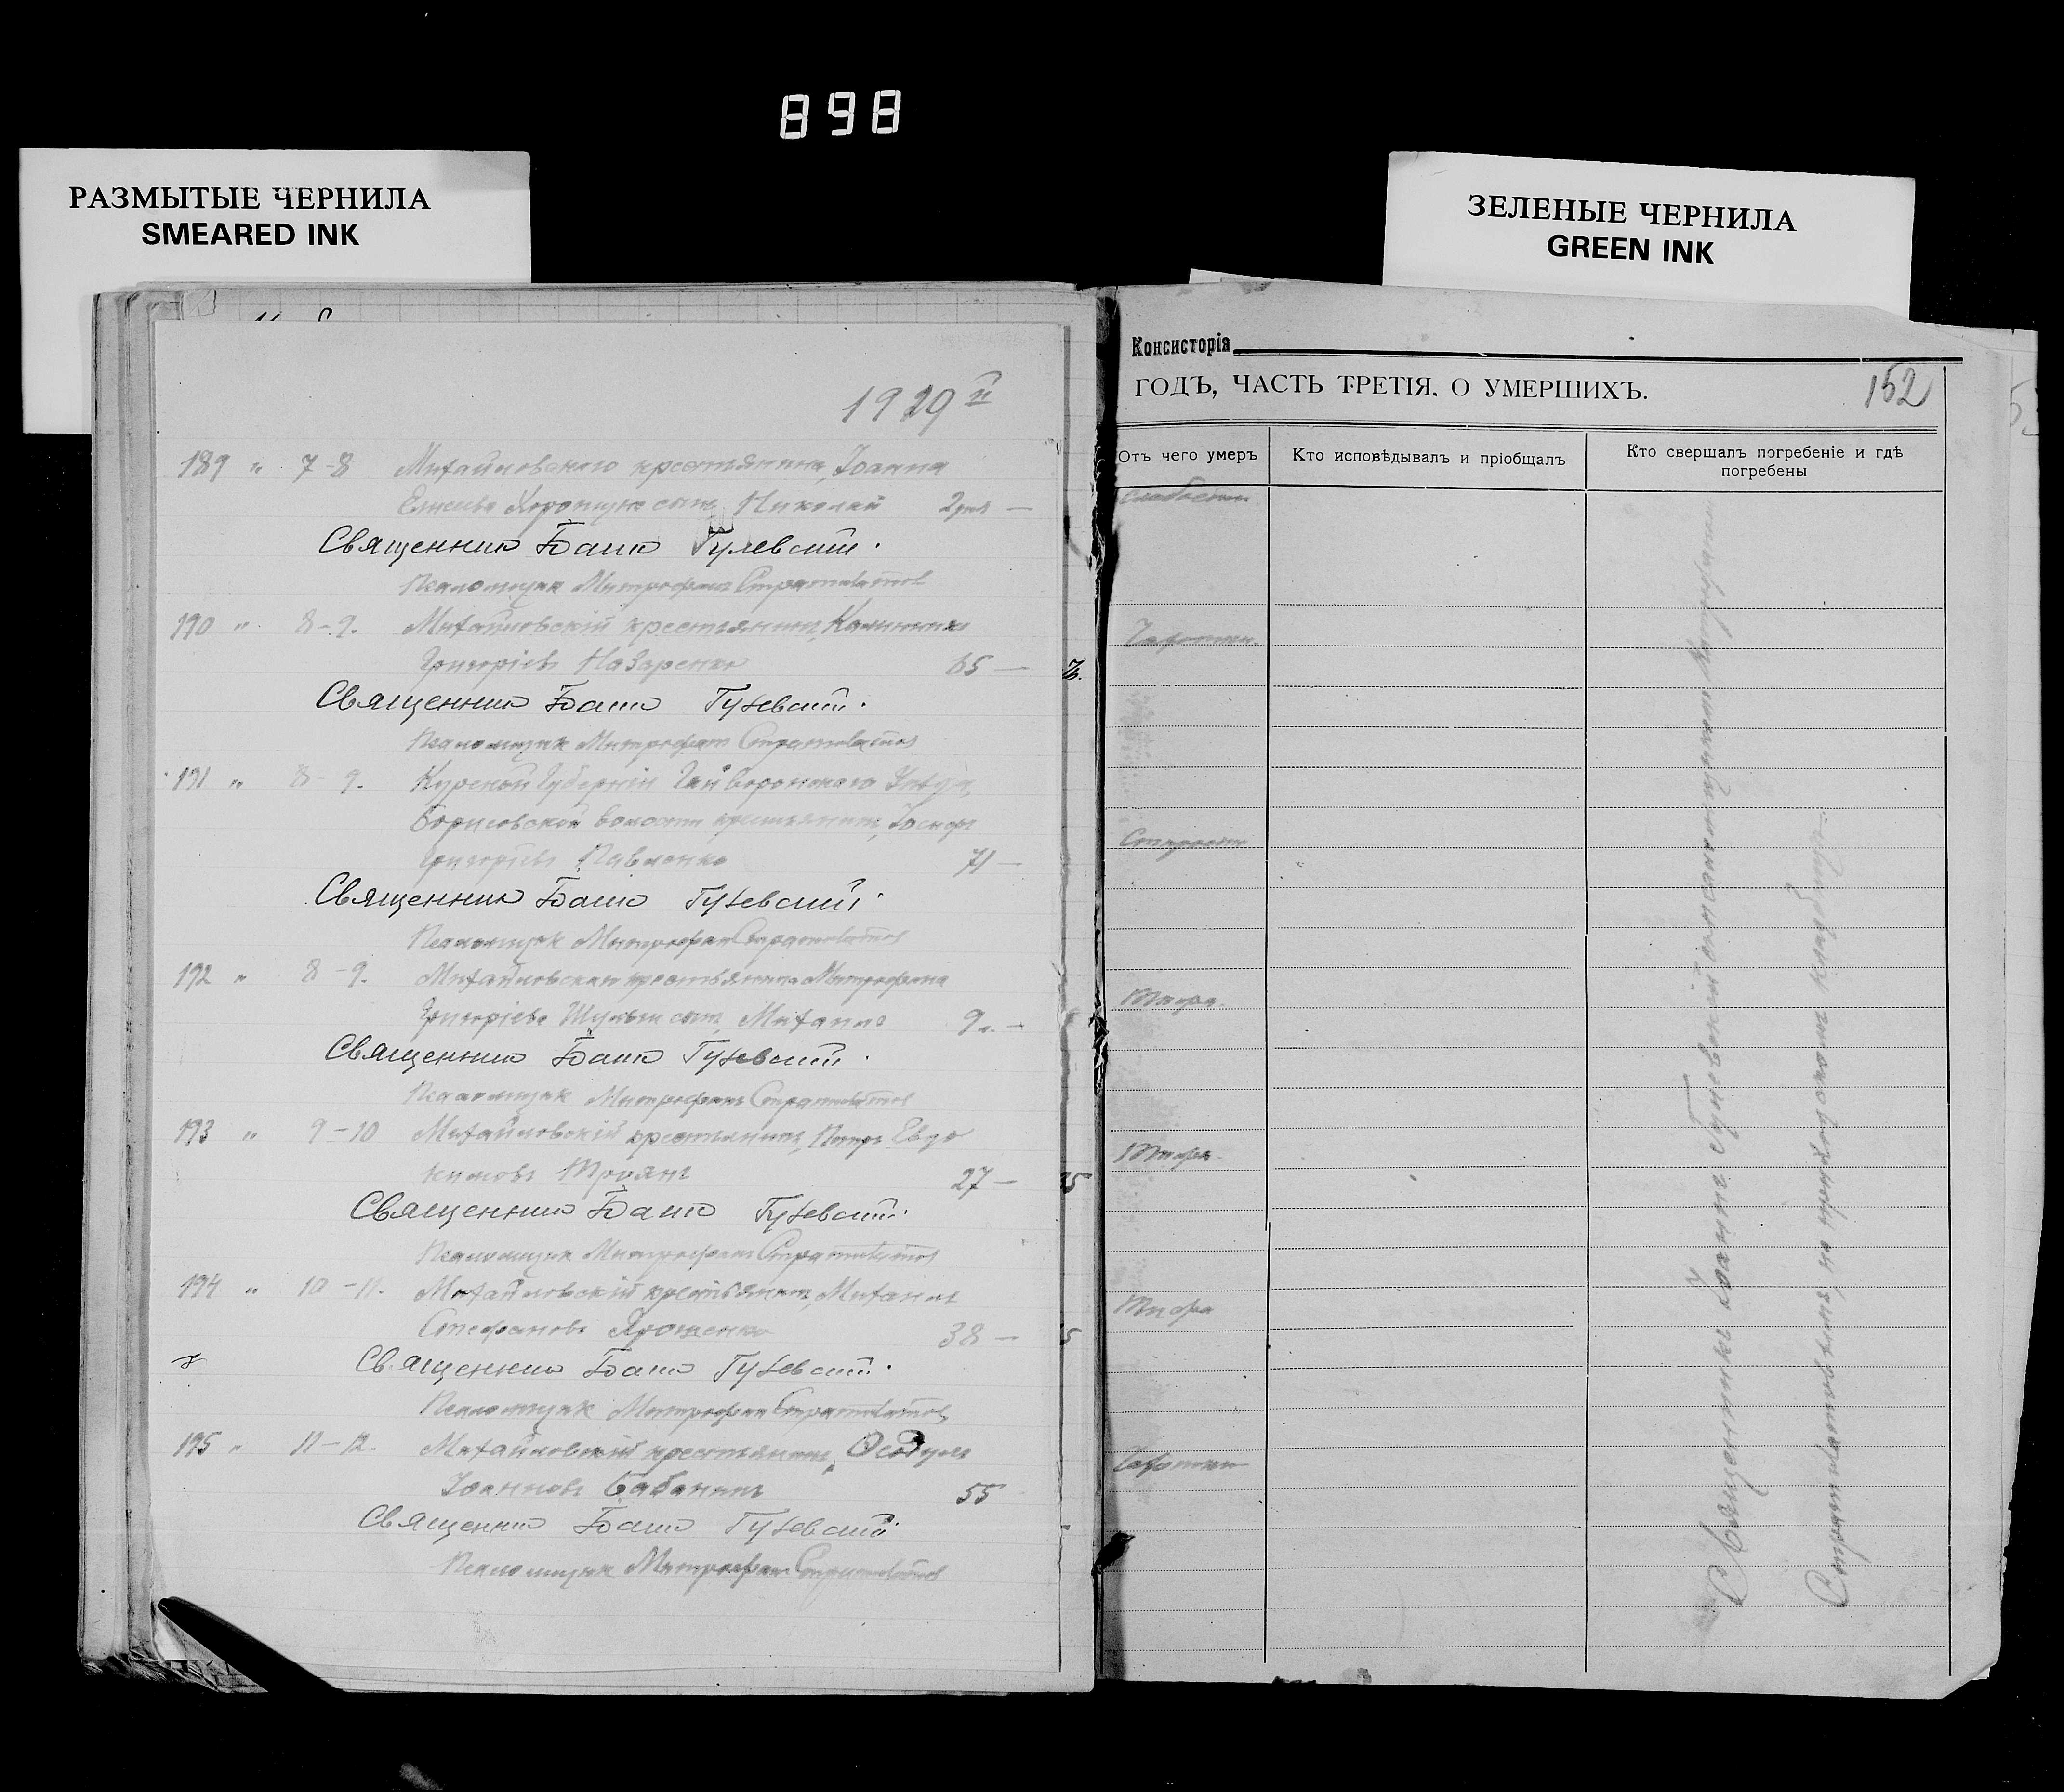 898
РАЗМЫТЫЕ ЧЕРНИЛА
SMEARED INK
ЗЕЛЕНЫЕ ЧЕРНИЛА
GREEN INK
19 20
189 " 7-8 Михайловскаго крестьянина, Іоанна
сынъ Николай 2 —
Священник Гулевскій.
Псаломщик Митрофан Стратилатов
190 " 8-9. Михайловскій крестьянинъ, Калинникъ
Григоріевъ Назаренко 65 —
Священник Гулевскій.
Псаломщик Митрофан Стратилатов
191 " 8-9. Курской Губерніи Грайворонскаго Уѣзда,
Борисовской волости крестьянинъ, Іосифъ
Григоріевъ Павленко 71 —
Священник Гулевскій.
Псаломщик Митрофан Стратилатов
192 " 8-9. Михайловскаго крестьянина Митрофана
Григоріева Шульги сынъ, Михаилъ 9 л. —
Священник Гулевскій.
Псаломщик Митрофан Стратилатов
193 " 9-10 Михайловскій крестьянинъ, Петръ Евдо
кимовъ Троянъ 27 —
Священник Гулевскій.
Псаломщик Митрофан Стратилатов
194 " 10-11. Михайловскій крестьянинъ, Михаилъ
Стефановъ Ярошенко 38 —
Священник Гулевскій.
Псаломщик Митрофан Стратилатов
195 " 11-12. Михайловскій крестьянинъ,
Іоанновъ Бабанинъ 55
Священник Гулевскій.
Псаломщик Митрофан Стратилатов
Консисторія
ГОДЪ, ЧАСТЬ ТРЕТІЯ. О УМЕРШИХЪ.
152
Отъ чего умеръ
Кто исповѣдывалъ и пріобщалъ
Кто свершалъ погребеніе и гдѣ
погребены
слабости
Чахотки.
Старости
Тифа.
Тифа.
Тифа
Чахотки
Священникъ Іоаннъ Гулевскій съ псаломщикомъ Митрофаномъ
Стратилатовымъ, на приходскомъ кладбищѣ.